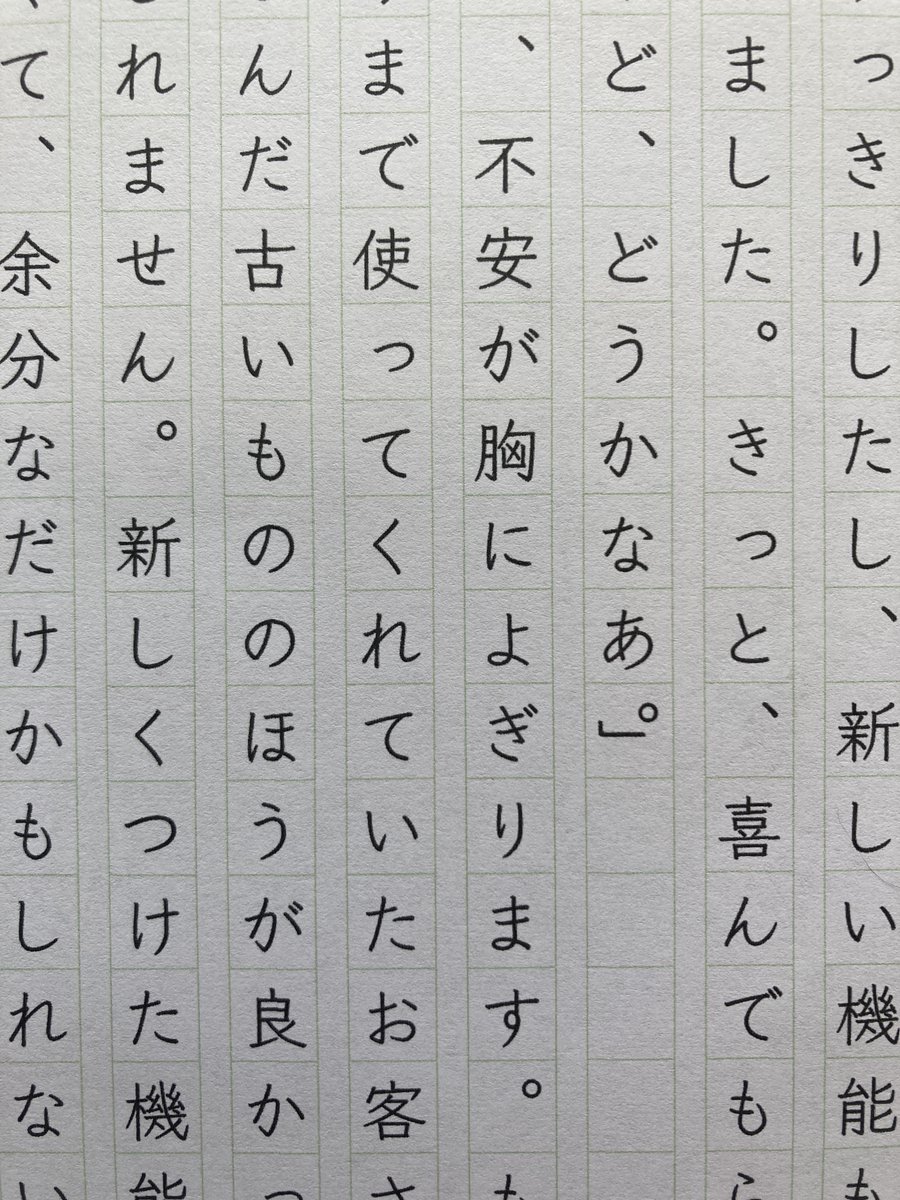 っきりしたし、新しい機能も
ました。きっと、喜んでもら
ど、どうかなあ」。
、不安が胸によぎります。も
まで使ってくれていたお客さ
んだ古いもののほうが良かっ
れません。新しくつけた機能
て、余分なだけかもしれない